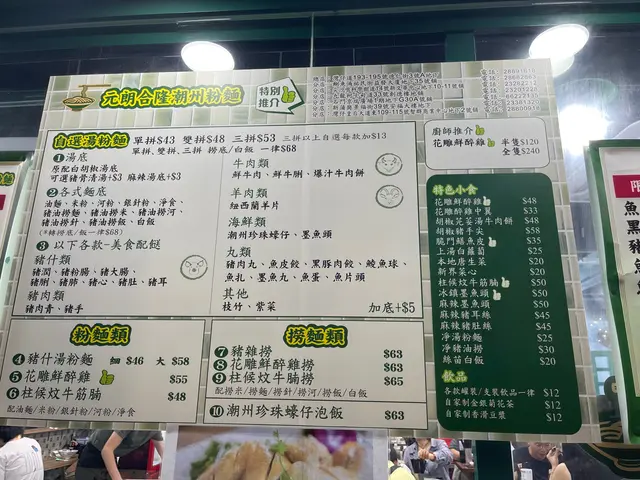 元朗合隆潮州粉麵
特別
推介
自選湯粉麵 單拼$43 雙拼$48 三拼$53 三拼以上自選每款加$13
單拼,雙拼,三拼 撈底/白飯 一律$68
1 湯底
原配白胡椒湯底
可選豬骨清湯+$3 麻辣湯底+$3
2 各式麵底
油麵·米粉·河粉·銀針粉·淨食、
豬油撈麵·豬油撈米·豬油撈河、
豬油撈針·豬油撈飯·白飯
(*轉撈底/飯一律$68)
3 以下各款-美食配餸
豬什類
豬潤、豬粉腸、豬大腸、
豬脷、豬肺、豬心、豬肚、豬耳
豬肉類
豬肉青、豬手
牛肉類
鮮牛肉、鮮牛脷、爆汁牛肉餅
羊肉類
紐西蘭羊片
海鮮類
潮州珍珠蠔仔、墨魚頭
丸類
豬肉丸、魚皮餃、黑豚肉餃、鯪魚球、
魚扎、墨魚丸、魚蛋、魚片頭
其他
枝竹、紫菜 加底+$5
粉麵類
4 豬什湯粉麵 細 $46 大 $58
5 花雕鮮醉雞 $55
6 柱候炆牛筋腩 $48
配油麵/米粉/銀針粉/河粉/淨食
撈麵類
7 豬雜撈 $63
8 花雕鮮醉雞撈 $63
9 柱候炆牛腩撈 $65
配撈米/撈麵/撈針/撈河/撈飯/白飯
10 潮州珍珠蠔仔泡飯 $63
廚師推介
花雕鮮醉雞 半隻$120
全隻$240
特色小食
花雕鮮醉雞 $48
花雕醉雞中翼 $33
胡椒芫荽湯牛肉餅 $48
胡椒豬手尖 $58
脆鬥鱔魚皮 $35
上湯白蘿蔔 $25
本地唐生菜 $20
新界菜心 $20
柱侯炆牛筋腩 $50
冰鎮墨魚頭 $50
麻辣墨魚頭 $50
麻辣豬耳絲 $45
麻辣豬肚絲 $45
淨湯粉麵 $25
淨豬油撈 $30
絲苗白飯 $20
飲品
各款罐裝/支裝飲品一律 $12
自家制金銀菊花茶 $12
自家制香滑豆漿 $12